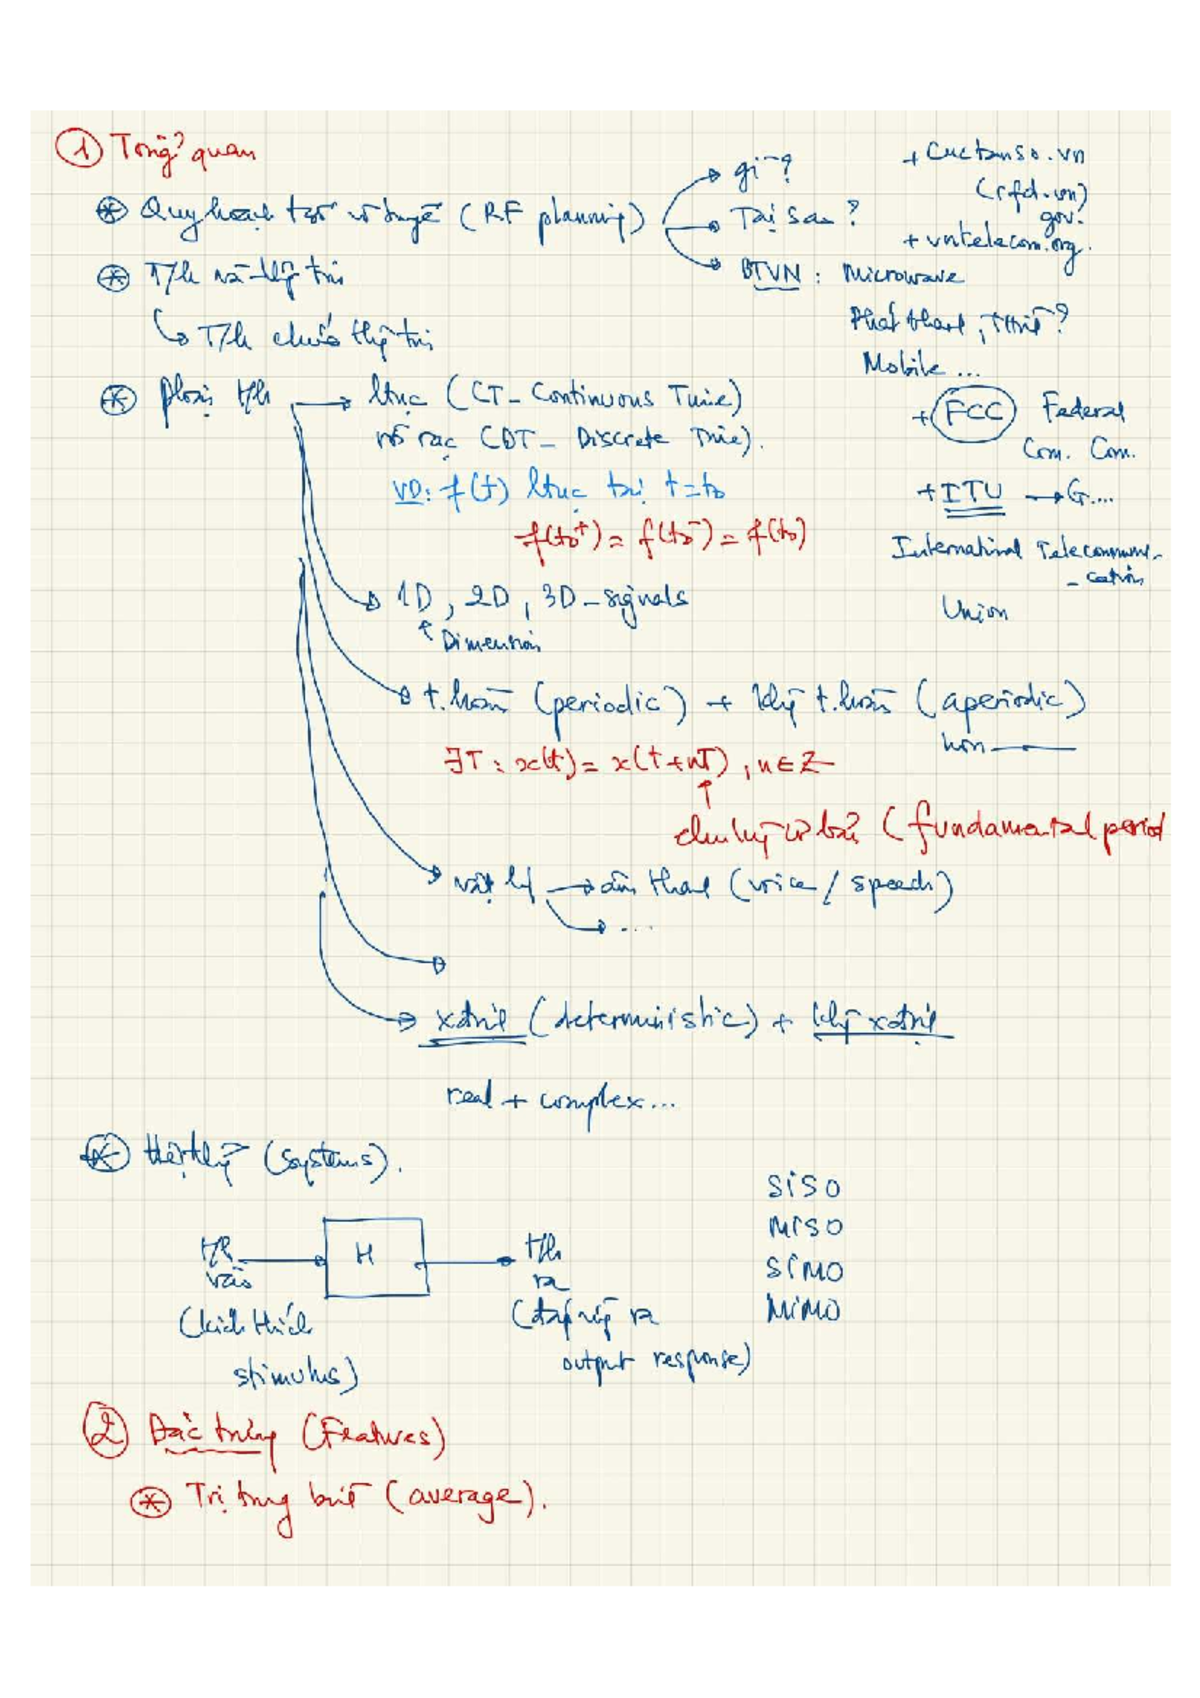 ① Tổng quan
⊛ Quy hoạch tsố vô tuyế (RF planning)
gì?
Tại sao?
BTVN: Microwave
Phát thanh, Thình?
Mobile ...
+ Cuctanso.vn
(rfd.vn)
gov.
+ vntelecom.org.
⊛ T/h và hệ thg
↳ T/h chứa thg tin
⊛ ploại t/h → ltục (CT - Continuous Time)
rời rạc (DT - Discrete Time).
VD: f(t) ltục tại t=t₀
f(t₀⁺) = f(t₀⁻) = f(t₀)
+ FCC Federal
Com. Com.
+ ITU → G....
International Telecommuni-
-cation
Union
1D, 2D, 3D - signals
↑ Dimension
t.hoàn (periodic) + khg t.hoàn (aperiodic)
non
∃T: x(t) = x(t+nT), n∈Z
↑
chu kỳ cơ bản (fundamental period
vật lý → âm thanh (voice / speech)
→ ...
xđịnh (deterministic) + khg xđịnh
real + complex...
⊛ Hệ thg (Systems).
t/h vào
H
t/h ra
(kích thích
stimulus)
(đáp ứng ra
output response)
SISO
MISO
SIMO
MIMO
② Đặc trưng (Features)
⊛ Trị trung bình (average).